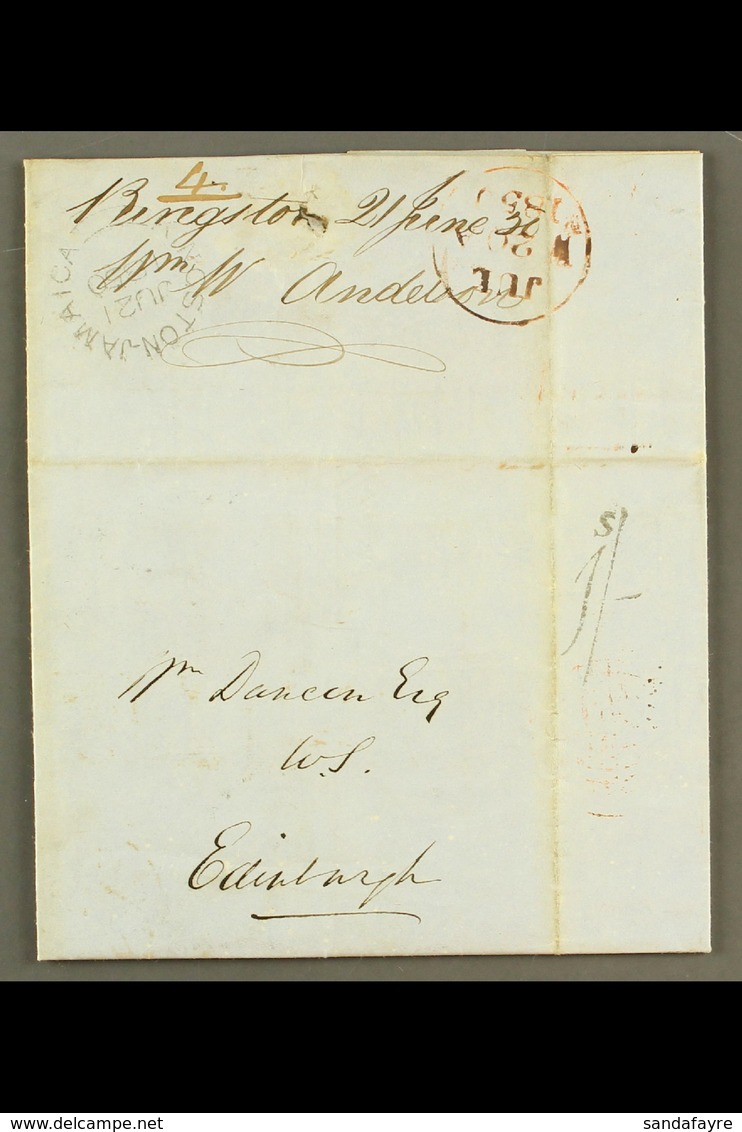 4.
Kingston 21 June 50
Wm W Anderson
KINGSTON-JAMAICA
JU21
JUL
20
185
S
1/-
Wm Duncan Esq
W.S.
Edinburgh
www.delcampe.net
sandafayre